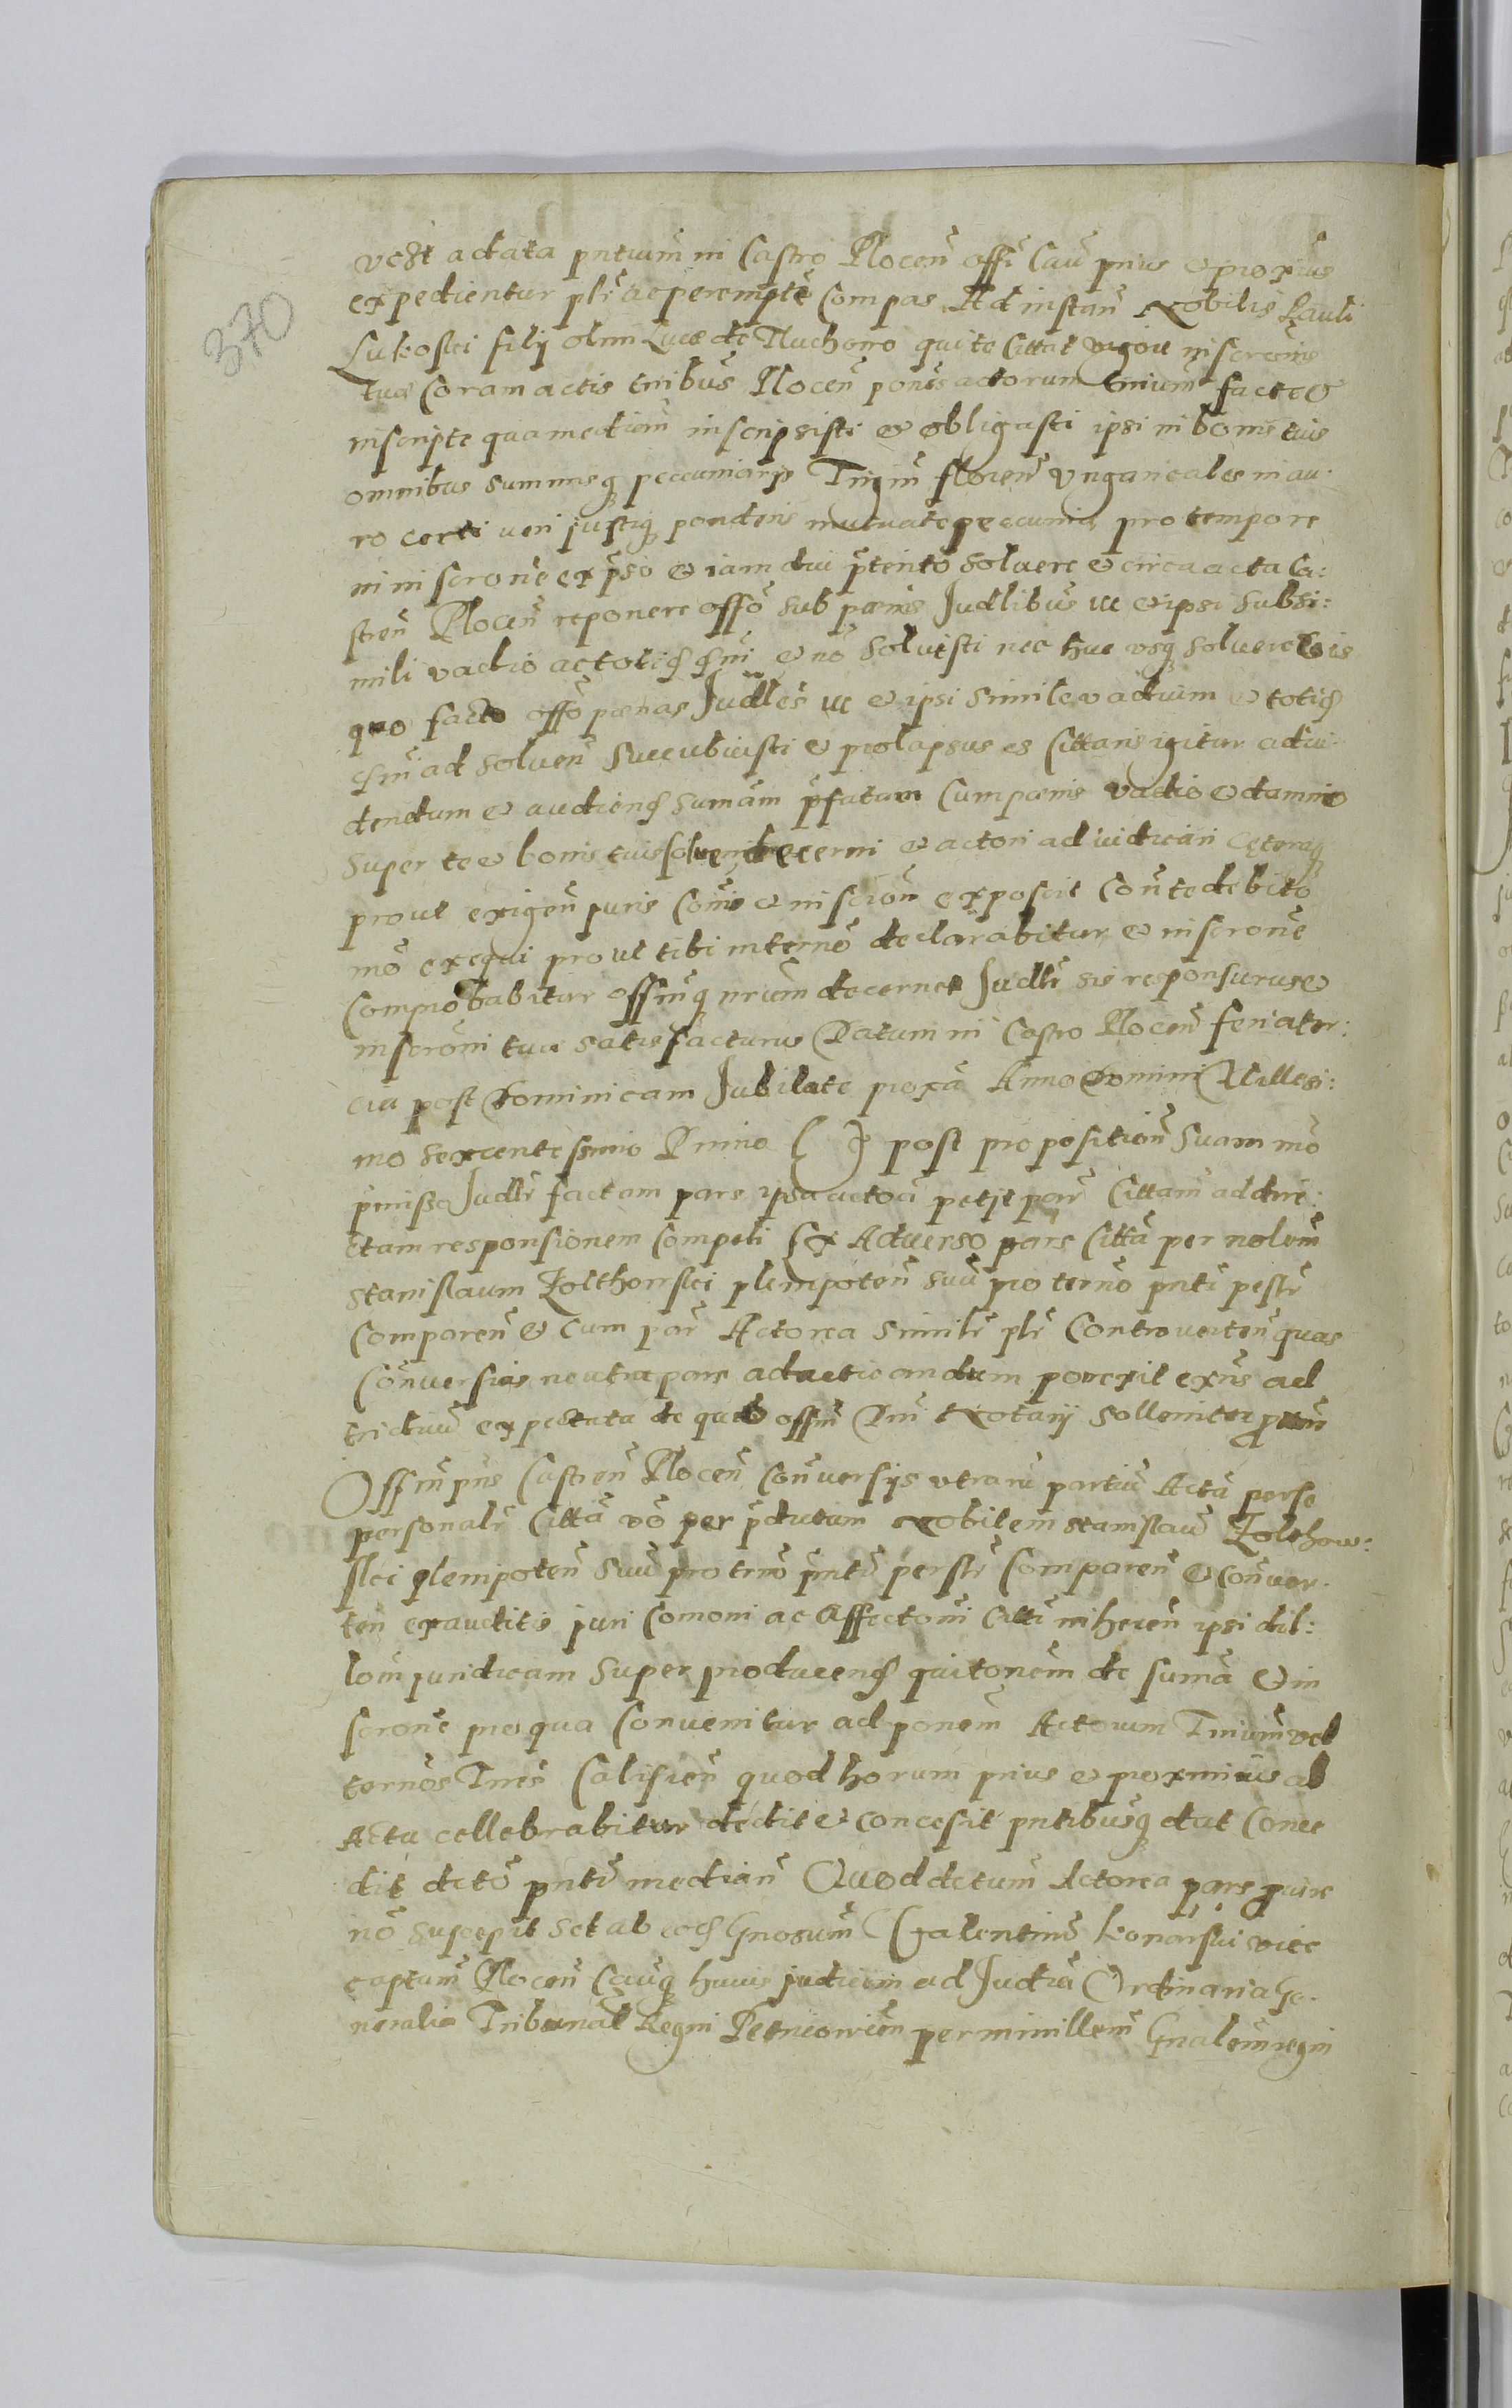 370
vel actata pntium in Castro Plocen offi Cau prius et proxius
expedientur plr ac peremptr Compas Ad instan Nobilis Pauli
Lukoski filij olim Luce de Muchowo qui te Cittat vigore inscrōnis
tue Coram actis tribus Plocen ponis actorum tnium facte et
inscripte qua median inscripsisti et obligasti ipsi in bonis tuis
omnibus summisq pecuniarijs Trigin floren Ungaricales in au:
ro certi veri justiq ponderis mutuate peccunie pro tempore
in inscrone expso et iam diu ptento solvere et circa acta Ca:
stren Plocen reponere offo sub pœnis Judlibus III et ipsi sub si:
mili vadio ac totis et no solvisti nec huc usq solvere Cuis
quo facto offo pœnas Judles III et ipsi simile vadium et totid
ad solven succubuisti et prolapsus es Cittaris igitur ad vi:
dendum et audiend sumam pfatam Cum pœnis vadio et damnis
super te et bonis tuis solven decerni et actori adiudicari Cęteraq
prout exigen juris Comis et inscrion exposcit Con te debito
mo exequi prout tibi in termo declarabitur et inscrone
Comprobabitur offinq nrum decernet Judlr sis responsurus et
inscroni tue satisfacturus Datum in Castro Plocen feria ter:
cia post Dominicam Jubilate proxa Anno Domini Millesi:
mo sexcentessimo Primo ( ) post propositiom suam mo
pmisso Judlr factam pars ipsa actoa petijt par Cittam ad dire:
ctam responsionem Compelli Ex Adverso pars Citta per nolem
Stanislaum Zolthowski plenipoten suu pro termo pnti pestr
Comparen et Cum par Actorea similr plr Controverten quas
Conversias neutra pars ad acticandum porrexit exns ad
triduu expectata de quo offm Dni Notarij sollenniter
Offm pns Castren Plocen Conversijs utraru partiu Acta per se
personalr Citta vo per pductum Nobilem Stanislau Zolthow:
ski plenipoten suu pro tmo pnti perslr Comparen et Conver:
ten exauditis juri Comoni ac Affectoni inheren ipsi dil:
lom juridicam super producend quitonem de suma et in
scrone pro qua Convenitur ad ponem Actorum Tnium vel
ternos Tnes Calisien quod horum prius et proximius ad
Acta cellebrabitur dedit et concessit pntibusq dat Conce
dit decto pnti median Quod dctum Actorea pars pro iure
no suscepit set ab eod Gnosum Valentinu Konarski vice
captum Plocen Cauq huius judicem ad Judia Ordinaria Ge:
neralia Tribunal Regni Petricovien per minillem Gnalem regni